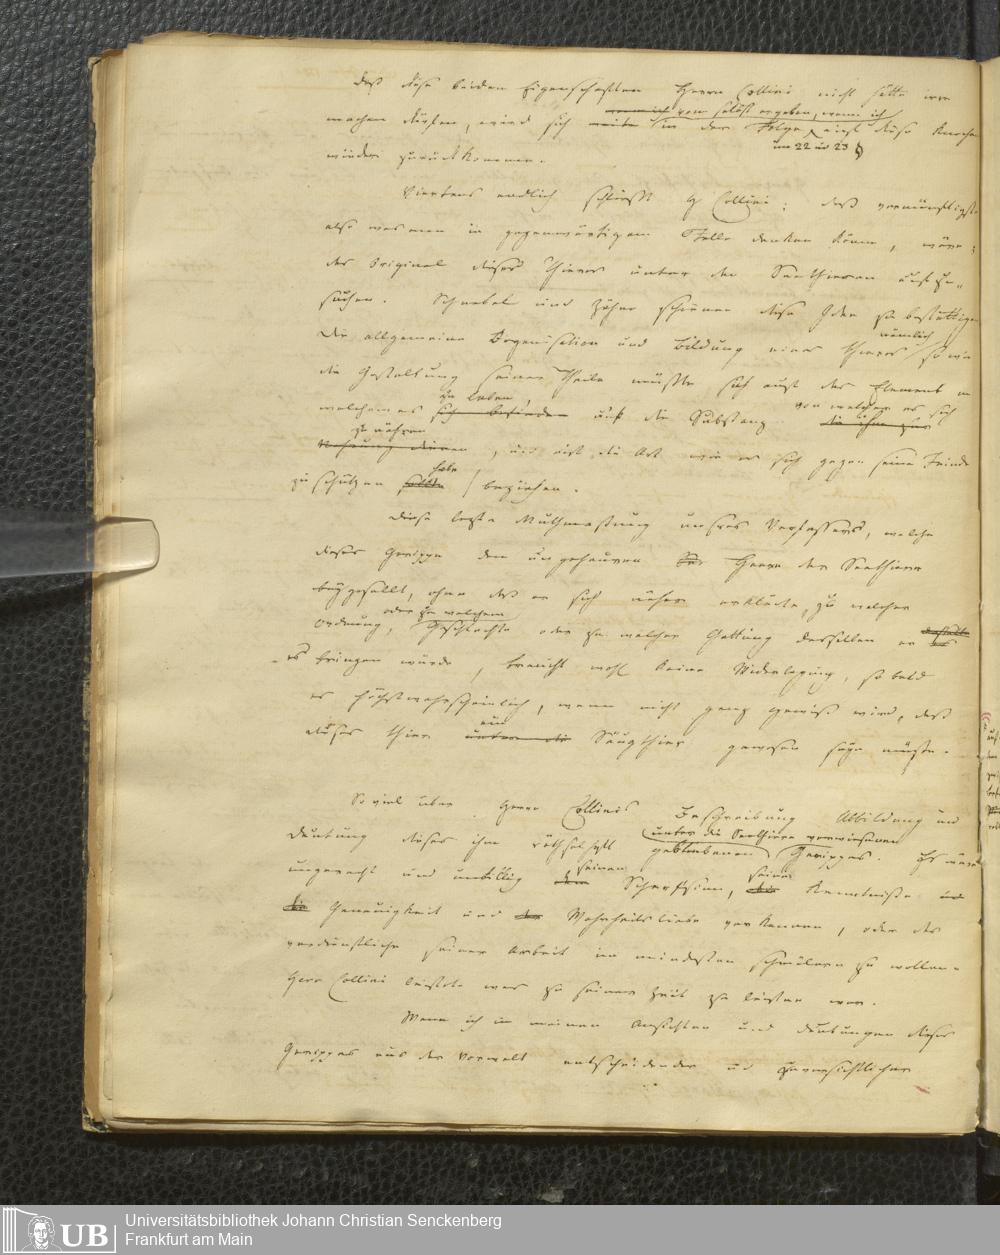 daß diese beiden Eigenschaften Herrn Collini nicht hätte irre
von selbst ergeben, wenn ich
machen dürfen, wird sich in der Folge, auf diese Knochen
um 22 und 23
wieder zurück komme.
Viertens endlich schließt H Collini: daß vernünftigste
also was man in gegenwärtigem Falle denken könne, wäre:
das Original dieses Thieres unter den Seethieren aufzu-
suchen. Schnabel und Zähne schienen diese Idee zu bestättigen
nämlich
Die allgemeine Organisation und Bildung eines Thieres so wie
die Gestaltung seiner Theile müßte sich auf das Element in
zu leben, von welcher es sich
welchem es sich befinde auf die Substanz die ihm zur
zu nähren
Nahrung dienen, und auf die Art wie es sich gegen seine Feinde
habe
zu schützen beziehen.
Diese letzte Muthmaßung unsres Verfassers, welche
dieses Gerippe dem ungeheuren Heere der Seethiere
beygesellt, ohne daß er sich näher erklärte, zu welcher
oder zu welchem
Ordnung, Geschlechte oder zu welcher Gattung desselben er dasselbe
es bringen würde, braucht wohl keine Widerlegung, so bald
es höchstwahrscheinlich, wenn nicht ganz gewiß wird, daß
ein
dieses Thier unter die Säugthier gewesen seyn müßte.
So viel über Herrn Collinis Beschreibung Abbildung und
unter die Seethiere verwiesenen
Deutung dieses ihm räthselhaft gebliebenen Gerippes. Es wäre
seinen seine
ungerecht und unbillig den Scharfsinn, die Kenntniße und
die Genauigkeit und die Wahrheitsliebe verkennen, oder das
verdienstliche seiner Arbeit im mindesten schmälern zu wollen.
Herr Collini leistete was zu seiner Zeit zu leisten war.
Wenn ich in meinen Ansichten und Deutungen dieses
Gerippes aus der Vorwelt entscheidender und zuversichtlicher
UB
Universitätsbibliothek Johann Christian Senckenberg
Frankfurt am Main